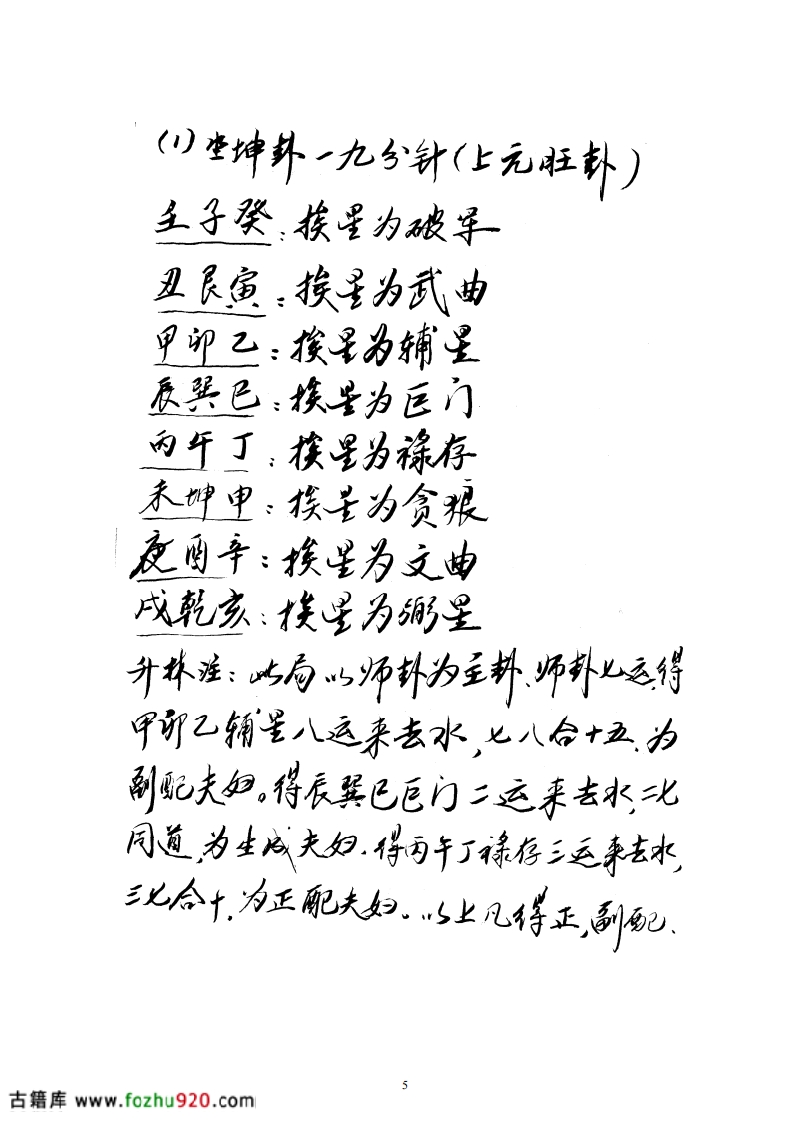 (1)坐坤卦一九分针(上元旺卦)
壬子癸：挨星为破军
丑艮寅：挨星为武曲
甲卯乙：挨星为辅星
辰巽巳：挨星为巨门
丙午丁：挨星为禄存
未坤申：挨星为贪狼
庚酉辛：挨星为文曲
戌乾亥：挨星为弼星
升林注：此局以师卦为主卦、师卦七运、得
甲卯乙辅星八运来去水，七八合十五．为
副配夫妇。得辰巽巳巨门二运来去水，二七
同道，为生成夫妇．得丙午丁禄存三运来去水，
三七合十．为正配夫妇。以上凡得正，副配．
5
古籍库 www.fozhu920.com